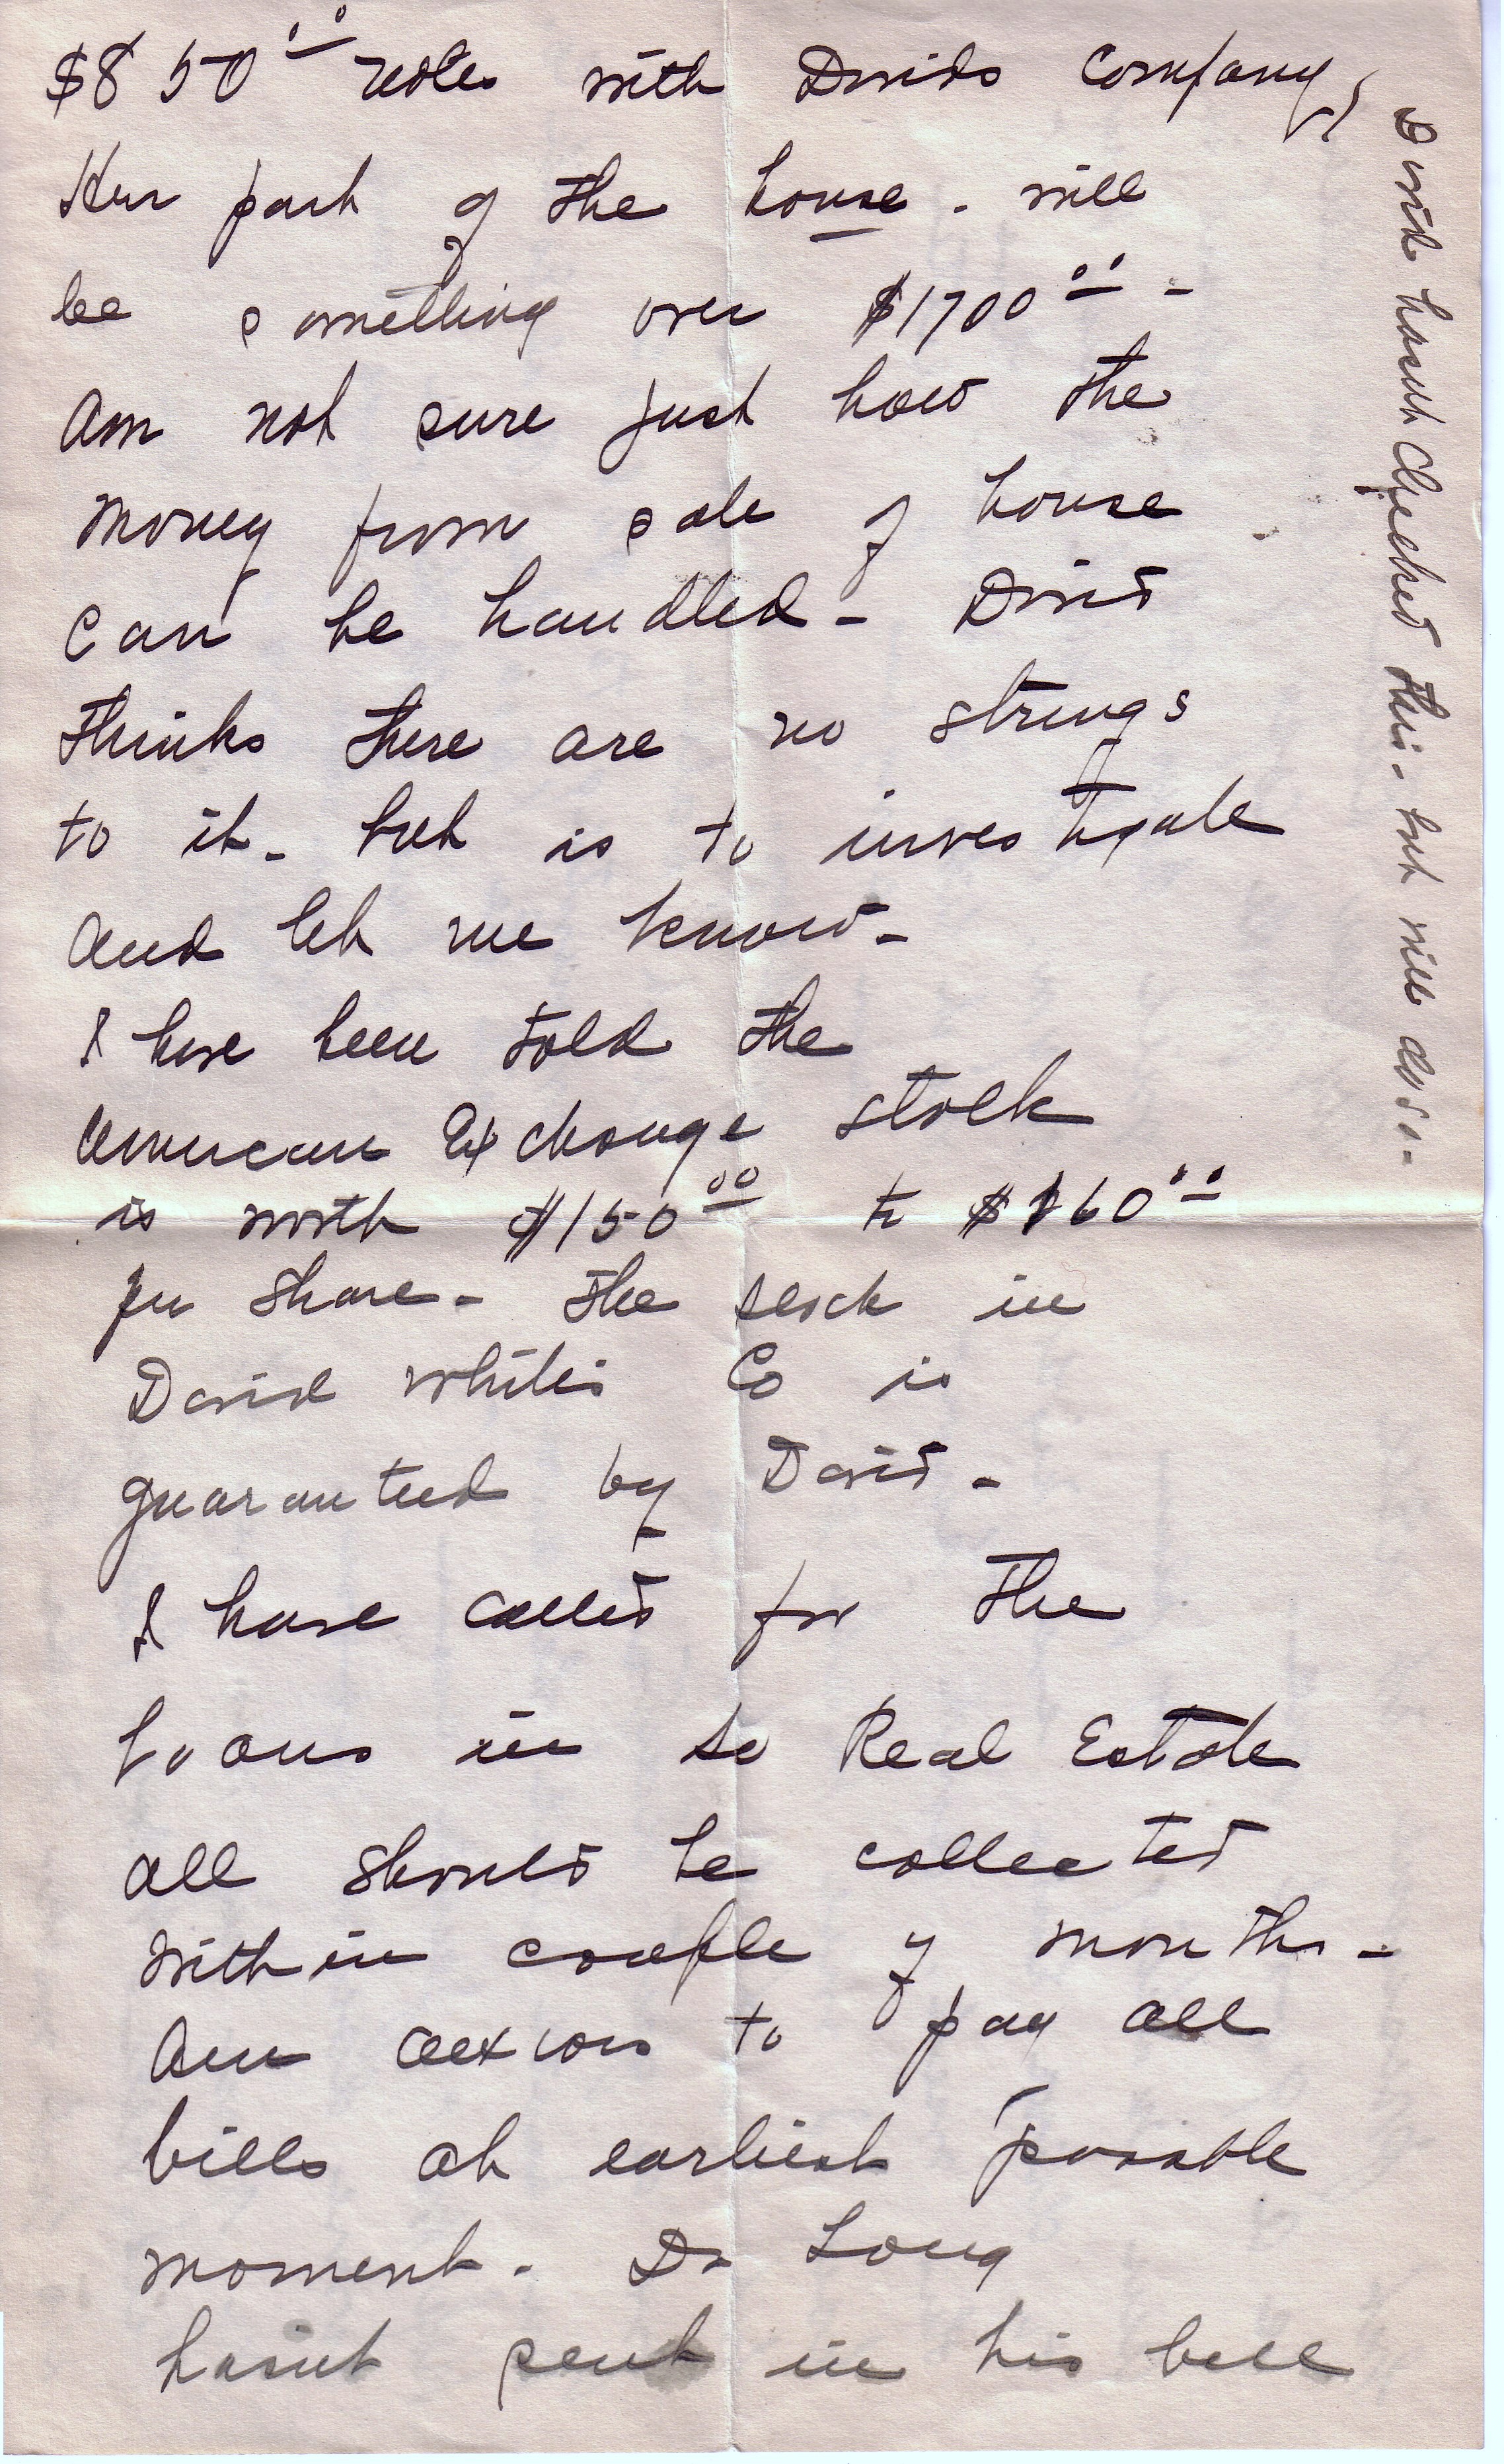 $850.00 notes with Davids Company,
Her part of the house - will
be something over $1700.00 -
am not sure just how the
money from sale of house
can be handled - David
thinks there are no strings
to it - but is to investigate
and let me know -
I have been told the
American Exchange stock
is worth $150.00 to $160.00
per share - The stock in
David White's Co is
guaranteed by David -
I have called for the
loans in so Real Estate
all should be collected
within couple of months -
Am anxious to pay all
bills at earliest possible
moment - Dr Long
hasn't sent in his bill
David hasnt checked this - but will do so -